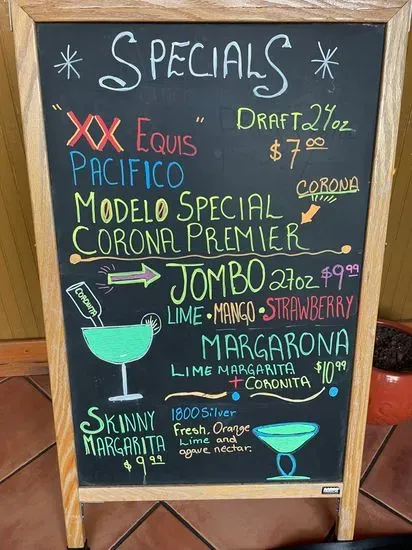 SPECIALS
"XX EQUIS"
DRAFT 24oz
$7.00
PACIFICO
CORONA
MODELO SPECIAL
CORONA PREMIER
JOMBO 27oz $9.99
LIME • MANGO • STRAWBERRY
CORONITA
MARGARONA
LIME MARGARITA
+ CORONITA
$10.99
SKINNY
MARGARITA
$9.99
1800 Silver
Fresh, Orange
Lime and
agave nectar.